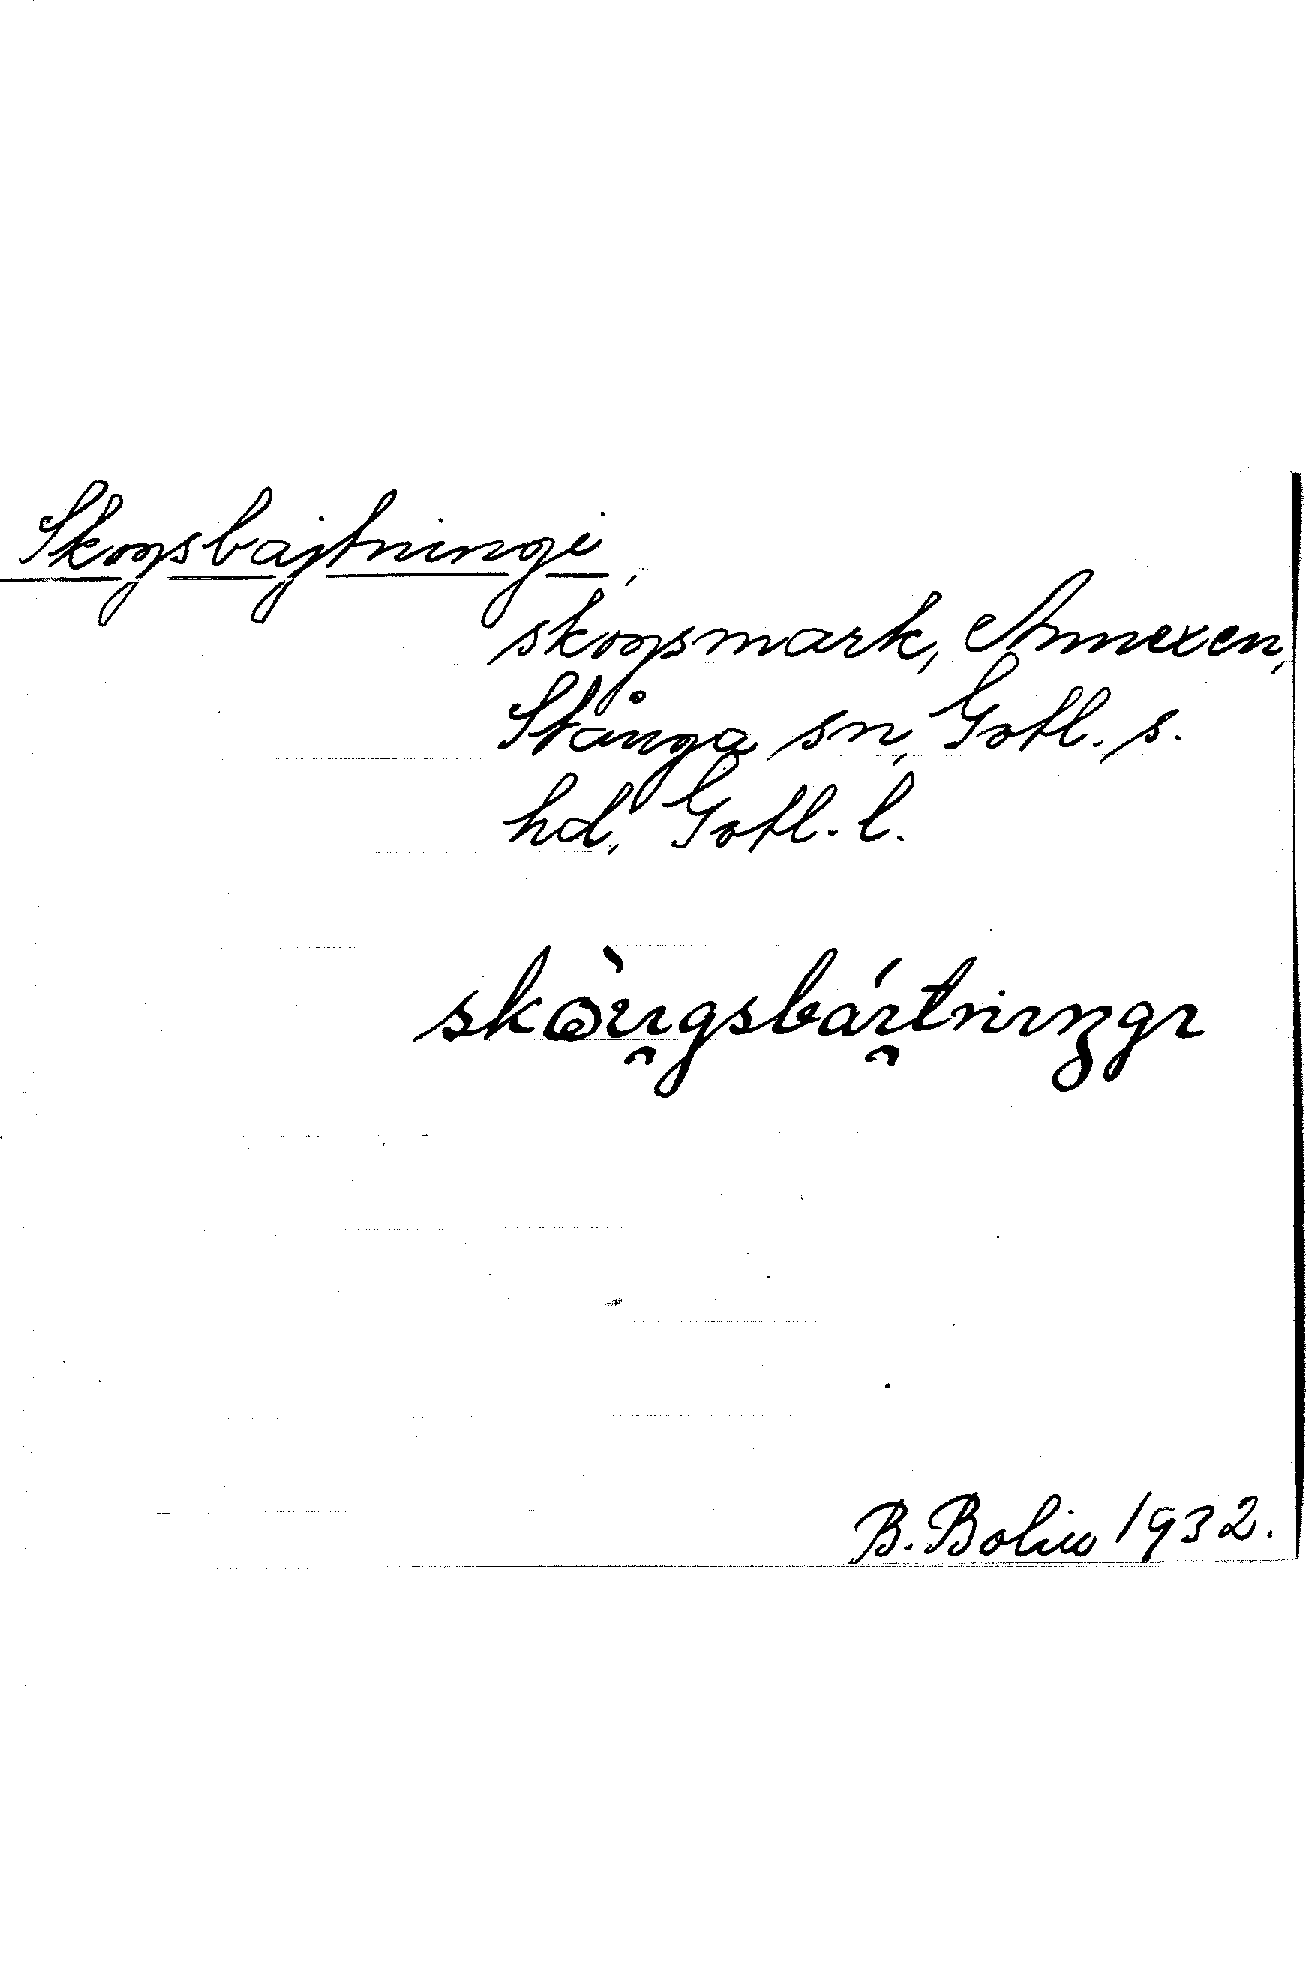 Skogsbajtningi,
skogsmark, Annexen,
Stånga sn, Gotl. s.
hd, Gotl. l.
B. Bolin 1932.